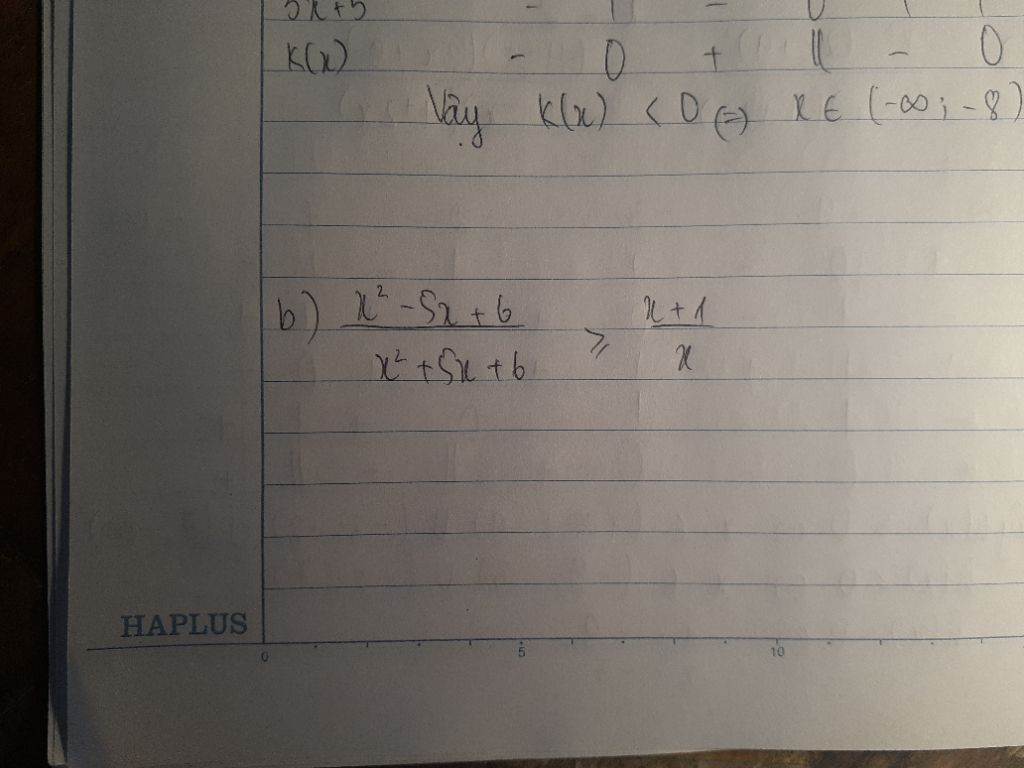 5x+5 - | - 0
K(x) - 0 + || - 0
Vậy K(x) < 0 (=) x ∈ (-∞; -8)
b) x² - 5x + 6 / x² + 5x + 6 ⩾ x + 1 / x
HAPLUS
0 5 10